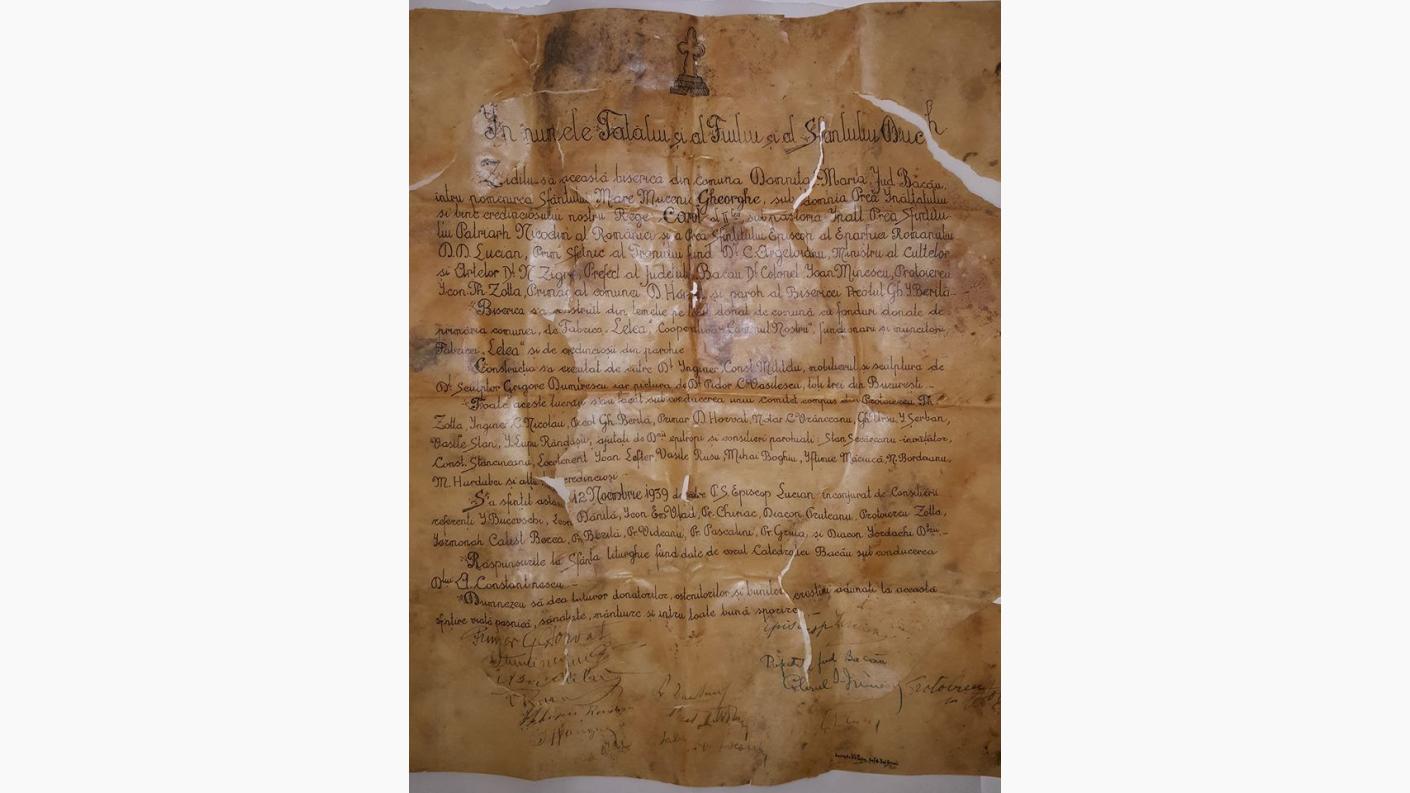 În numele Tatălui și al Fiului și al Sfântului Duch
Ziditu-s-a această biserică din comuna Domnița Maria, Jud. Bacău,
întru pomenirea Sfântului Mare Mucenic Gheorghe, sub domnia Prea Înălțatului
și bine credinciosului nostru Rege Carol al II lea sub păstoria Înalt Prea Sfințitu-
lui Patriarh Nicodim al României și a Prea Sfințitului Episcop al Eparhiei Romanului
D.D. Lucian, Prim Sfetnic al Tronului fiind Dl C. Argetoianu, Ministru al Cultelor
și Artelor Dl N. Zigre, Prefect al județului Bacău Dl Colonel Ioan Minescu, Protoiereu
Icon. Th. Zotta, Primar al comunei D. și paroh al Bisericei Preotul Gh. I. Berilă.-
Biserica s-a construit din temelie pe donat de comună cu fonduri donate de
primăria comunei, de Fabrica „Letea" Cooperativa „Căminul Nostru", funcționari și muncitori,
Fabricei „Letea" și de credincioșii din parohie
Construcția s-a executat de către Dl Inginer Const. mobilierul și sculptura de
Dl. Sculptor Grigore Dumitrescu iar pictura de Dl Pictor C. Vasilescu, toți trei din București.-
Toate aceste lucrări s-au făcut sub conducerea unui comitet compus din Protoiereu Th.
Zotta, Inginer C. Nicolau, Preot Gh. Berilă, Primar D. Horvat, Notar C. Vrânceanu, Gh. Ursu, I. Șerban,
Vasile Stan, I. Lupu Rândașu, ajutați de Dnii epitropi și consilieri parohiali: Stan Secăreanu-învățător,
Const. Stăncineanu, Locotenent Ioan Lefter, Vasile Rusu, Mihai Boghiu, Iftimie Măciucă, N. Bordeianu
M. Hurdubei și alți credincioși.-
S'a sfințit astăzi 12 Noembrie 1939 de către P.S. Episcop Lucian înconjurat de Consilierii
referenți I. Bucevschi, Icon Dănilă, Icon Em. Vlad, Pr. Chiriac, Diacon Pruteanu, Protoiereu Zotta,
Iermonah Calist Bercea, Pr. Berilă, Pr. Videanu, Pr. Pascalini, Pr. Grina, și Diacon Iordachi Dtru.-
Răspunsurile la Sfânta liturghie fiind date de corul Catedralei Bacău sub conducerea
Dlui A. Constantinescu.-
Dumnezeu să dea tuturor donatorilor, ostenitorilor și bunilor creștini adunați la această
sfințire viață pașnică, sănătate, mântuire și întru toate bună sporire
Primar Horvat Episcop Lucian
Prefect jud Bacău
Colonel I. Protoiereu